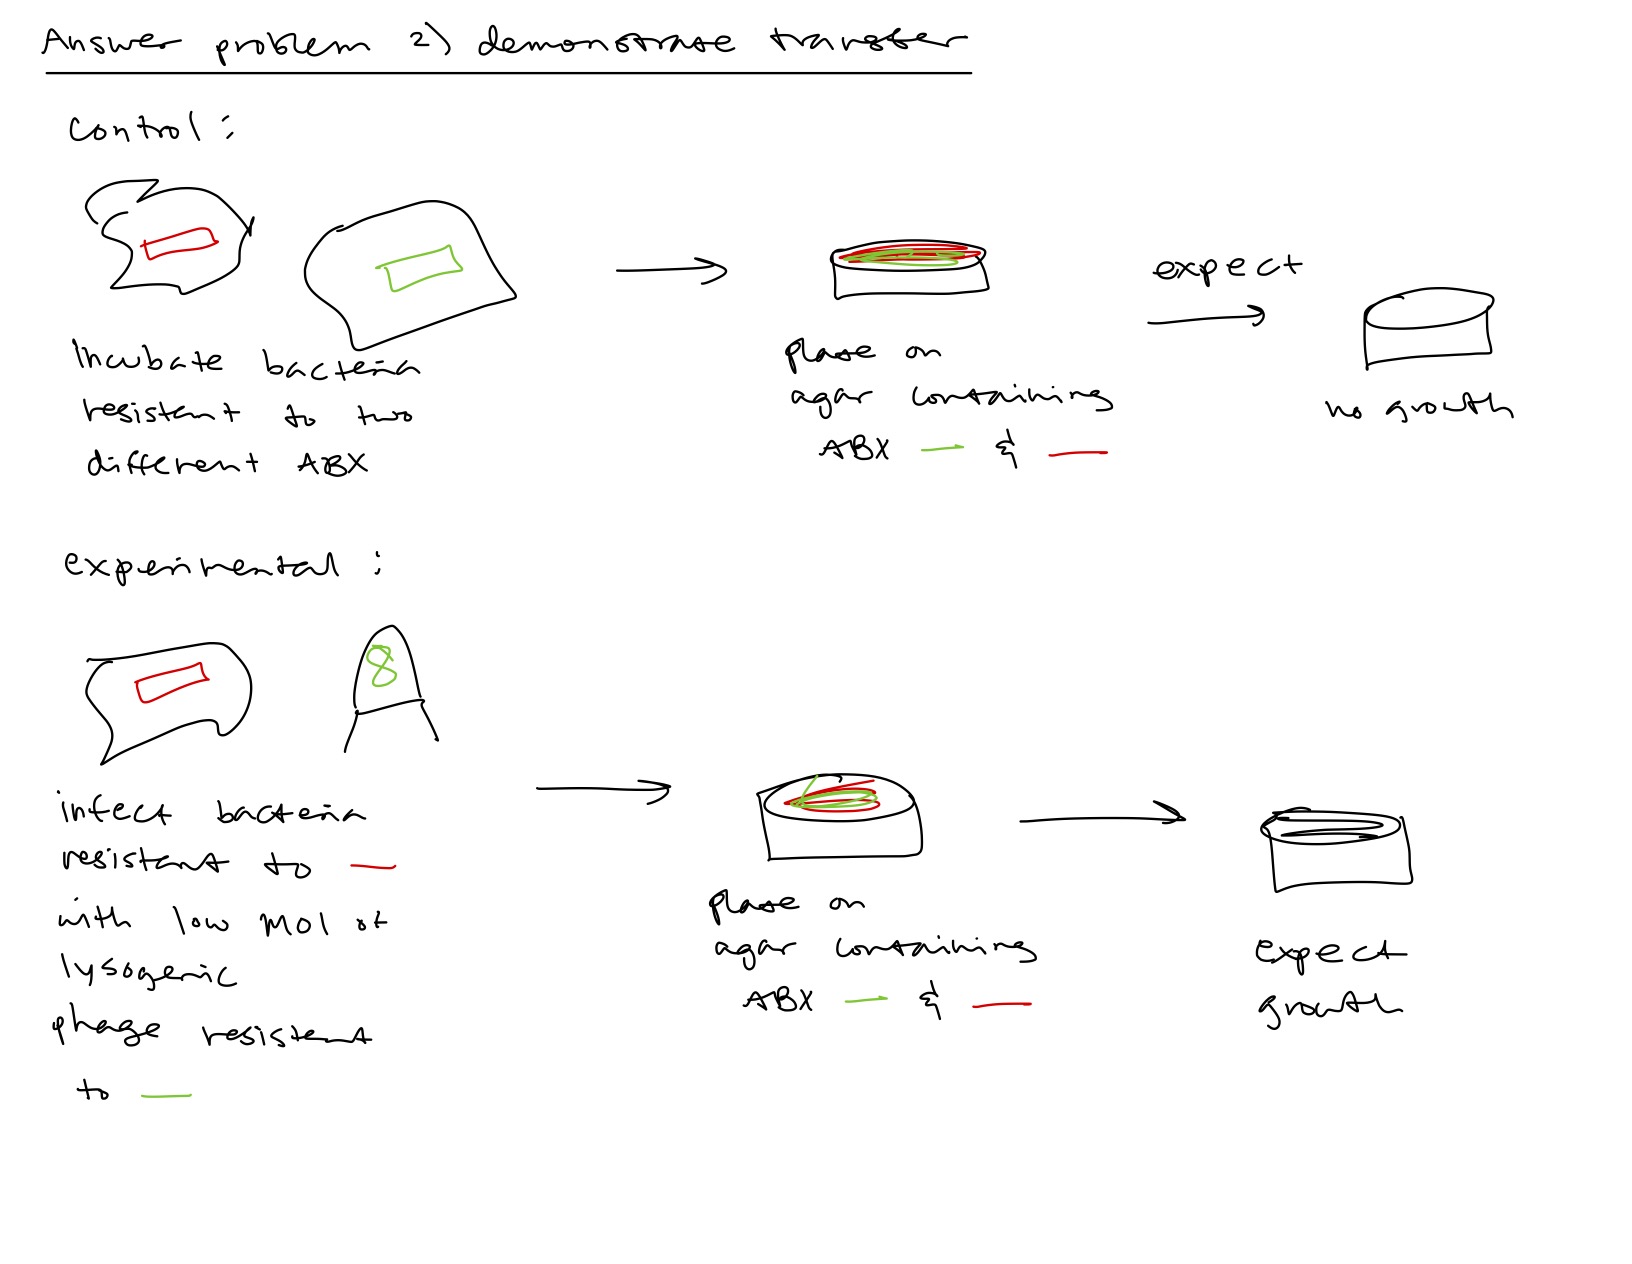 Answer problem 2) demonstrate transfer
control:
Incubate bacteria
resistant to two
different ABX
plate on
agar containing
ABX — & —
expect
no growth
experimental:
infect bacteria
resistant to —
with low MOI of
lysogenic
phage resistant
to —
plate on
agar containing
ABX — & —
expect
growth